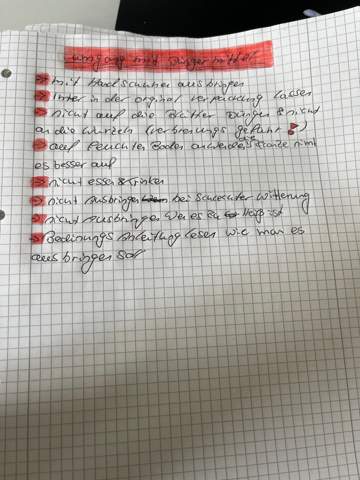 umgang mit Dünger mittel
→ mit Handschuhe ausbringen
→ Immer in der orginal verpackung lassen
→ nicht auf die Blätter Düngen & nicht
an die wurzeln (verbrenungs gefahr!)
→ auf Feuchten Boden anwenden, die Pflanze nimt
es besser auf
→ nicht essen & trinken
→ nicht Ausbringen bei Schlechter Witterung
→ nicht Ausbringen wen es zu Heiß ist
→ Bedinungs Anleitung lesen wie man es
ausbringen sol